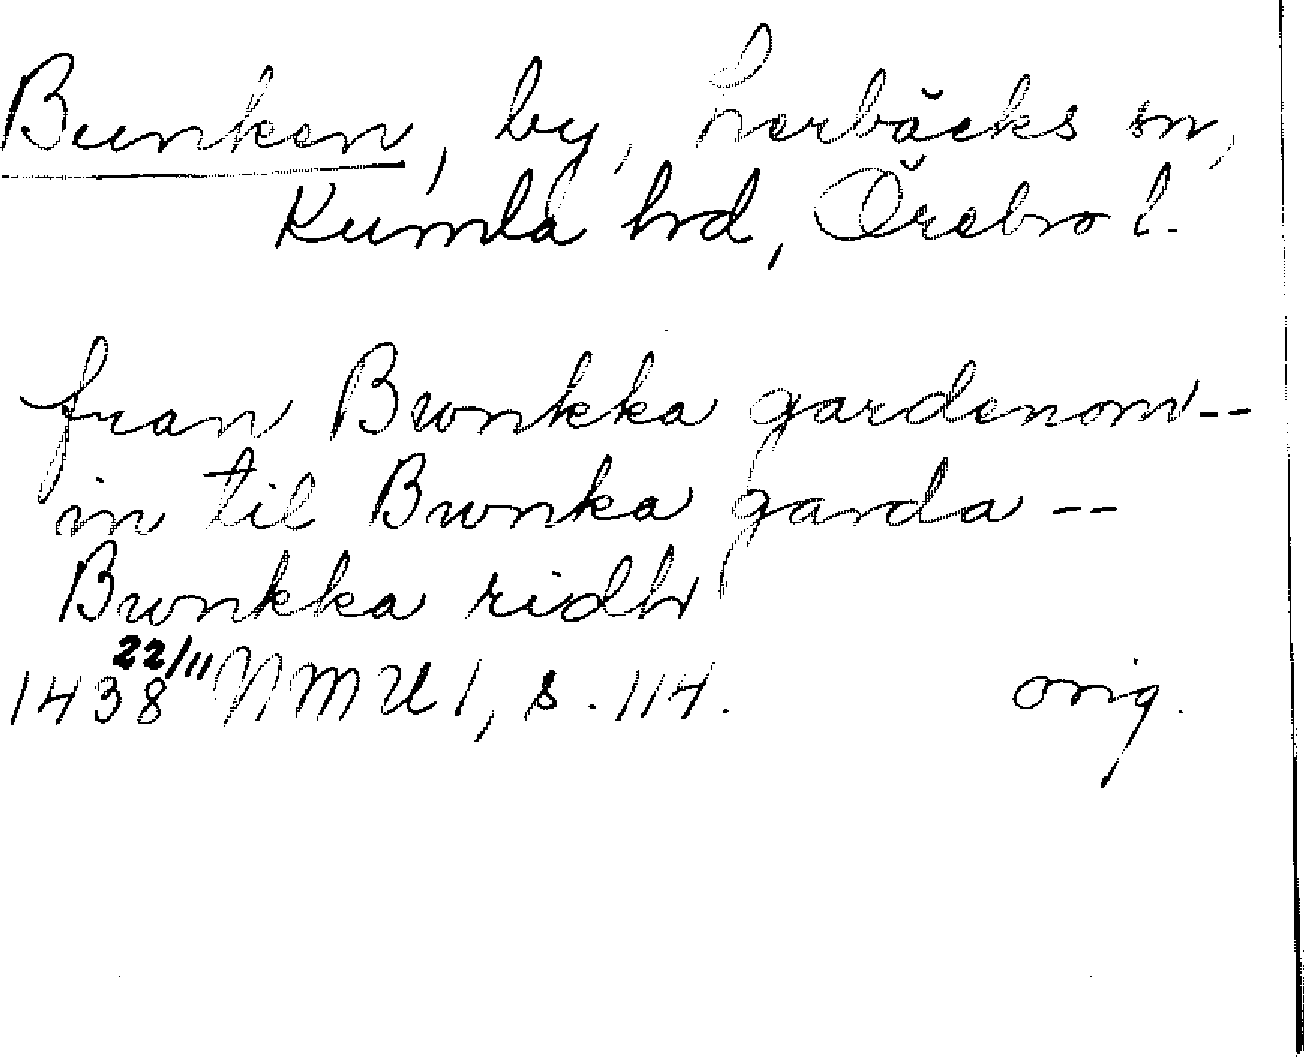 Bunken, by, Lerbäcks sn,
Kumla hd, Örebro l.
fran Bwnkka gardenom --
in til Bwnka garda --
Bwnkka ridh
1438 22/11 NMU 1, s. 114. orig.